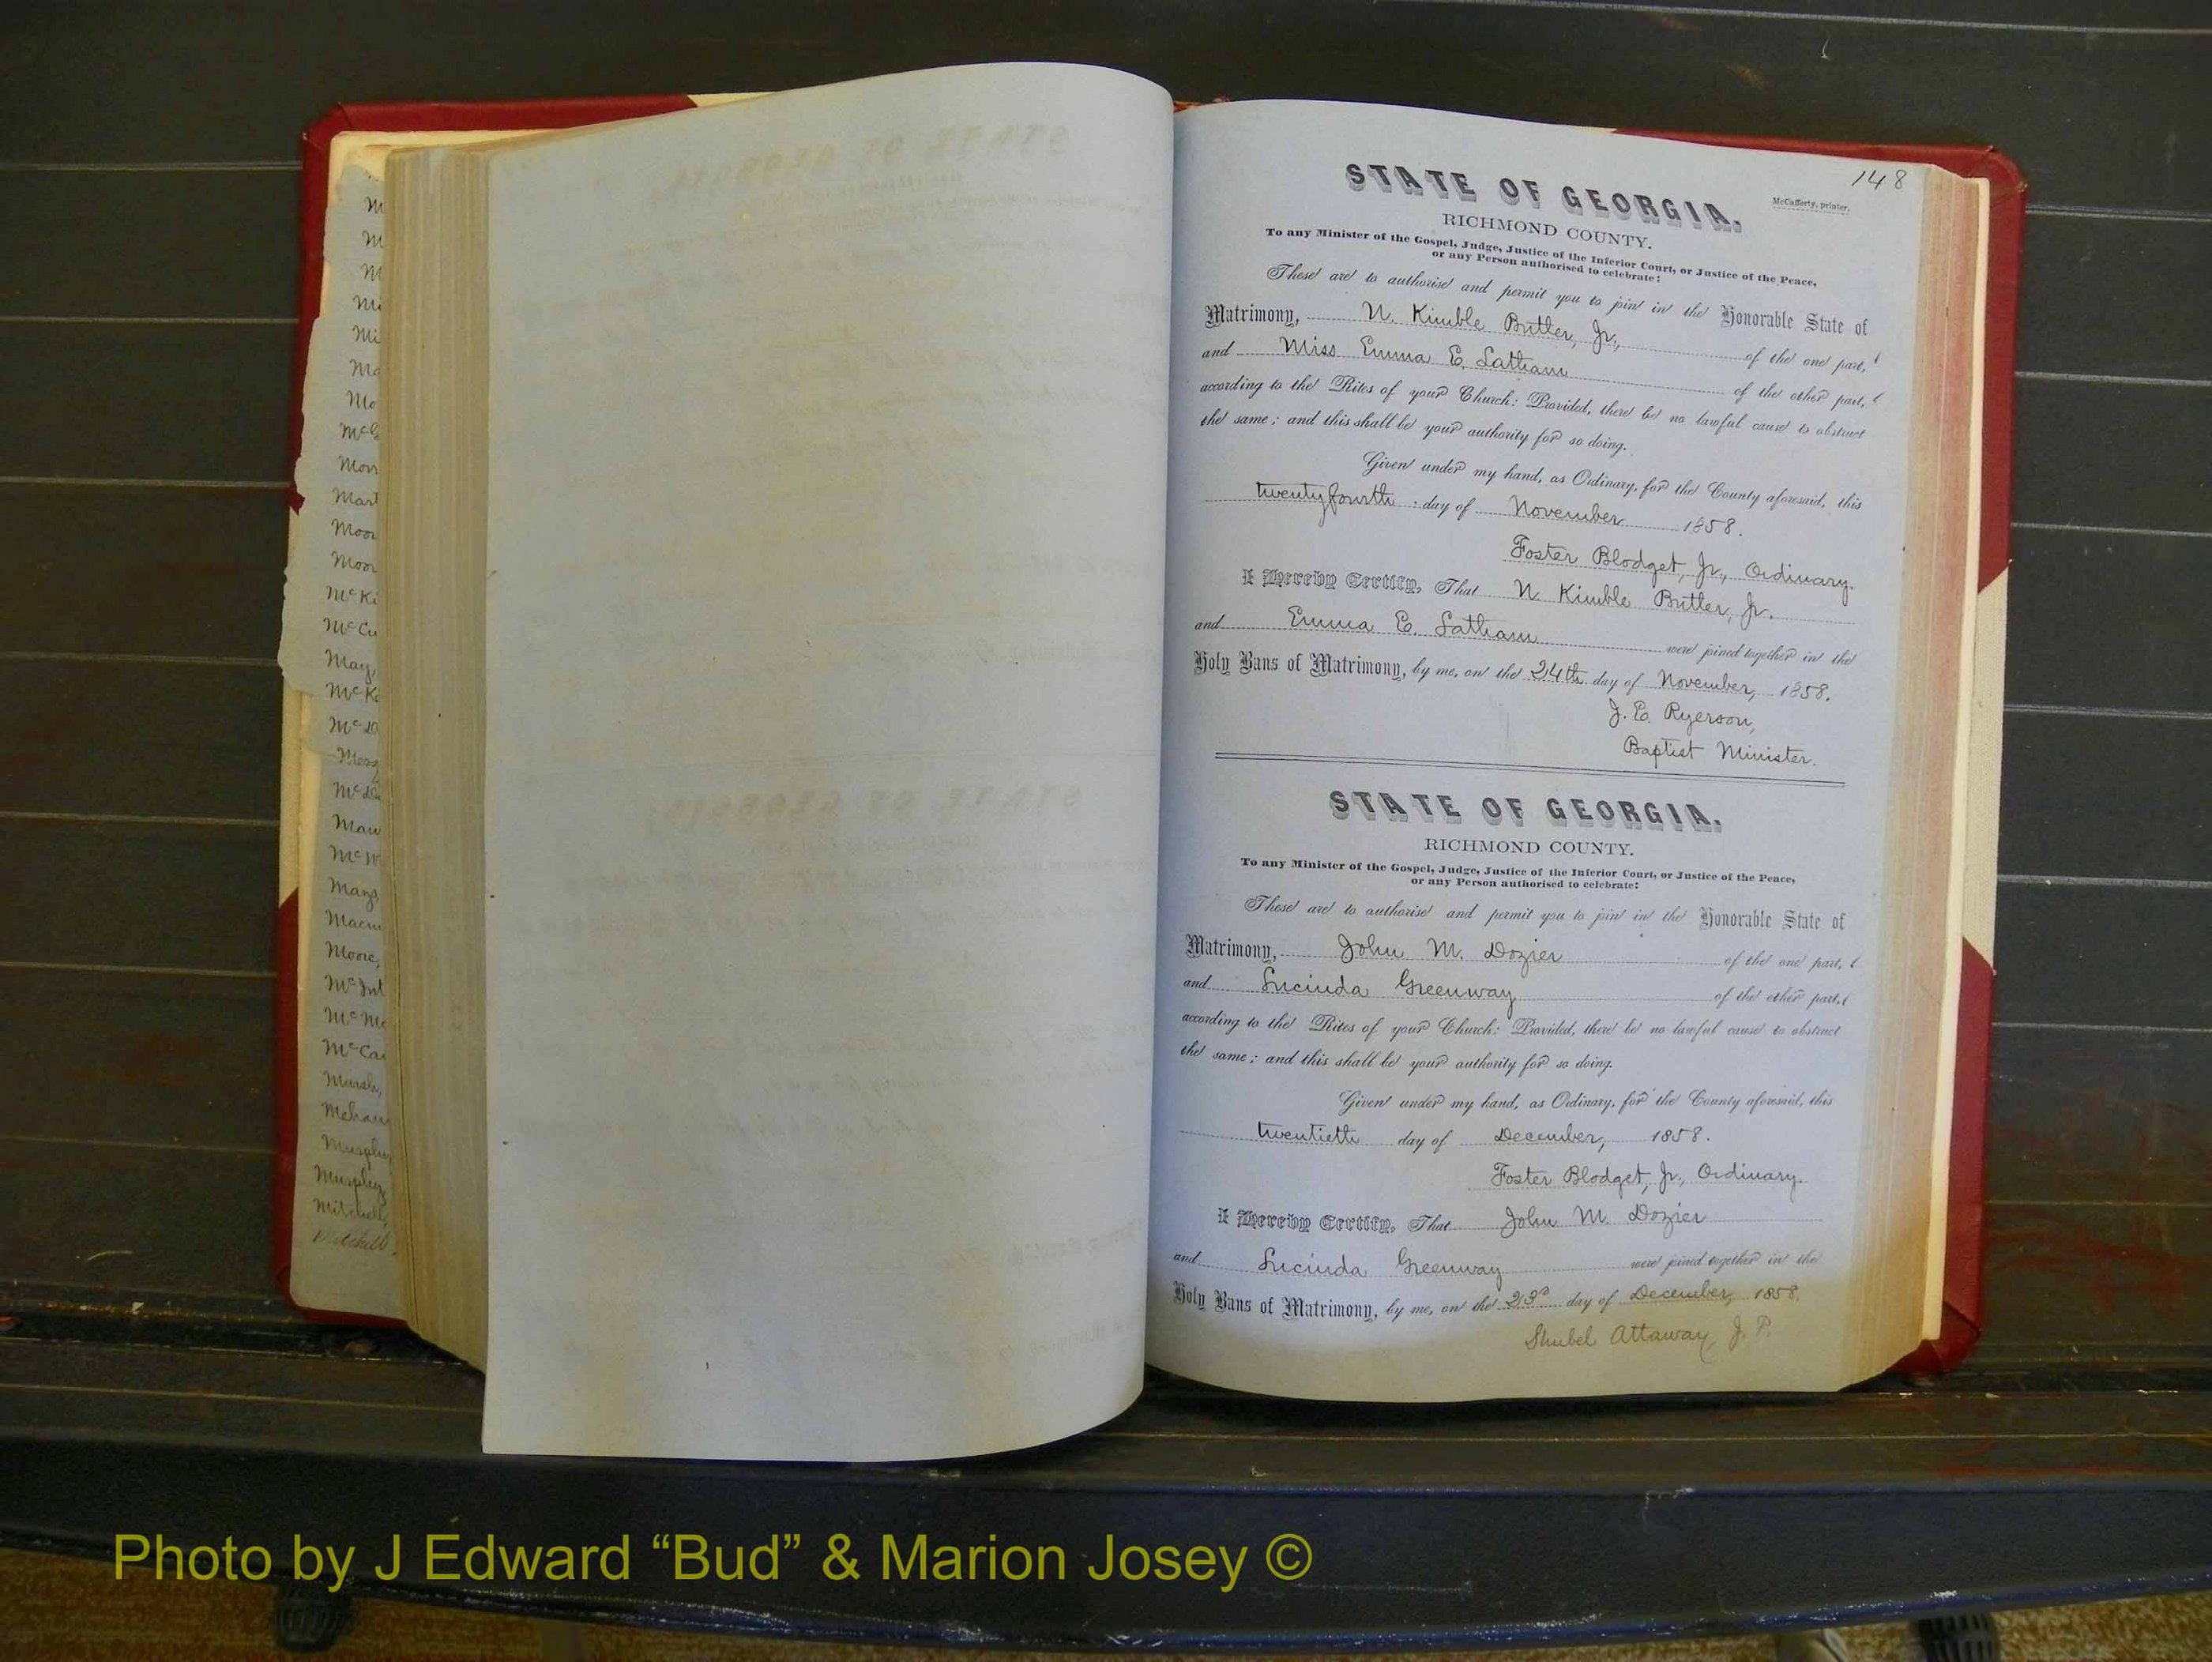 M
M
M
Mi
Mi
Ma
Mo
McG
Morr
Mart
Moor
Moor
McKi
McCu
May,
McK
McD
McD
Mau
McW
Mays
Macm
Moore,
McInt
McMa
McCa
Marsh,
Mehan
Murphy
Murphy
Mitchell,
Mitchell,
148
STATE OF GEORGIA.
McCafferty, printer.
RICHMOND COUNTY.
To any Minister of the Gospel, Judge, Justice of the Inferior Court, or Justice of the Peace,
or any Person authorised to celebrate:
These are to authorise and permit you to join in the Honorable State of
Matrimony, N. Kimble Butler, Jr., of the one part,
and Miss Emma E. Latham of the other part,
according to the Rites of your Church: Provided, there be no lawful cause to obstruct
the same; and this shall be your authority for so doing.
Given under my hand, as Ordinary, for the County aforesaid, this
twenty fourth day of November 1858.
Foster Blodget, Jr., Ordinary.
I Hereby Certify, That N. Kimble Butler, Jr.
and Emma E. Latham were joined together in the
Holy Bans of Matrimony, by me, on the 24th day of November, 1858.
J. E. Ryerson,
Baptist Minister.
STATE OF GEORGIA.
RICHMOND COUNTY.
To any Minister of the Gospel, Judge, Justice of the Inferior Court, or Justice of the Peace,
or any Person authorised to celebrate:
These are to authorise and permit you to join in the Honorable State of
Matrimony, John M. Dozier of the one part,
and Lucinda Greenway of the other part,
according to the Rites of your Church: Provided, there be no lawful cause to obstruct
the same; and this shall be your authority for so doing.
Given under my hand, as Ordinary, for the County aforesaid, this
twentieth day of December, 1858.
Foster Blodget, Jr., Ordinary.
I Hereby Certify, That John M. Dozier
and Lucinda Greenway were joined together in the
Holy Bans of Matrimony, by me, on the 23d day of December, 1858.
Shubel Attaway, J. P.
Photo by J Edward “Bud” & Marion Josey ©